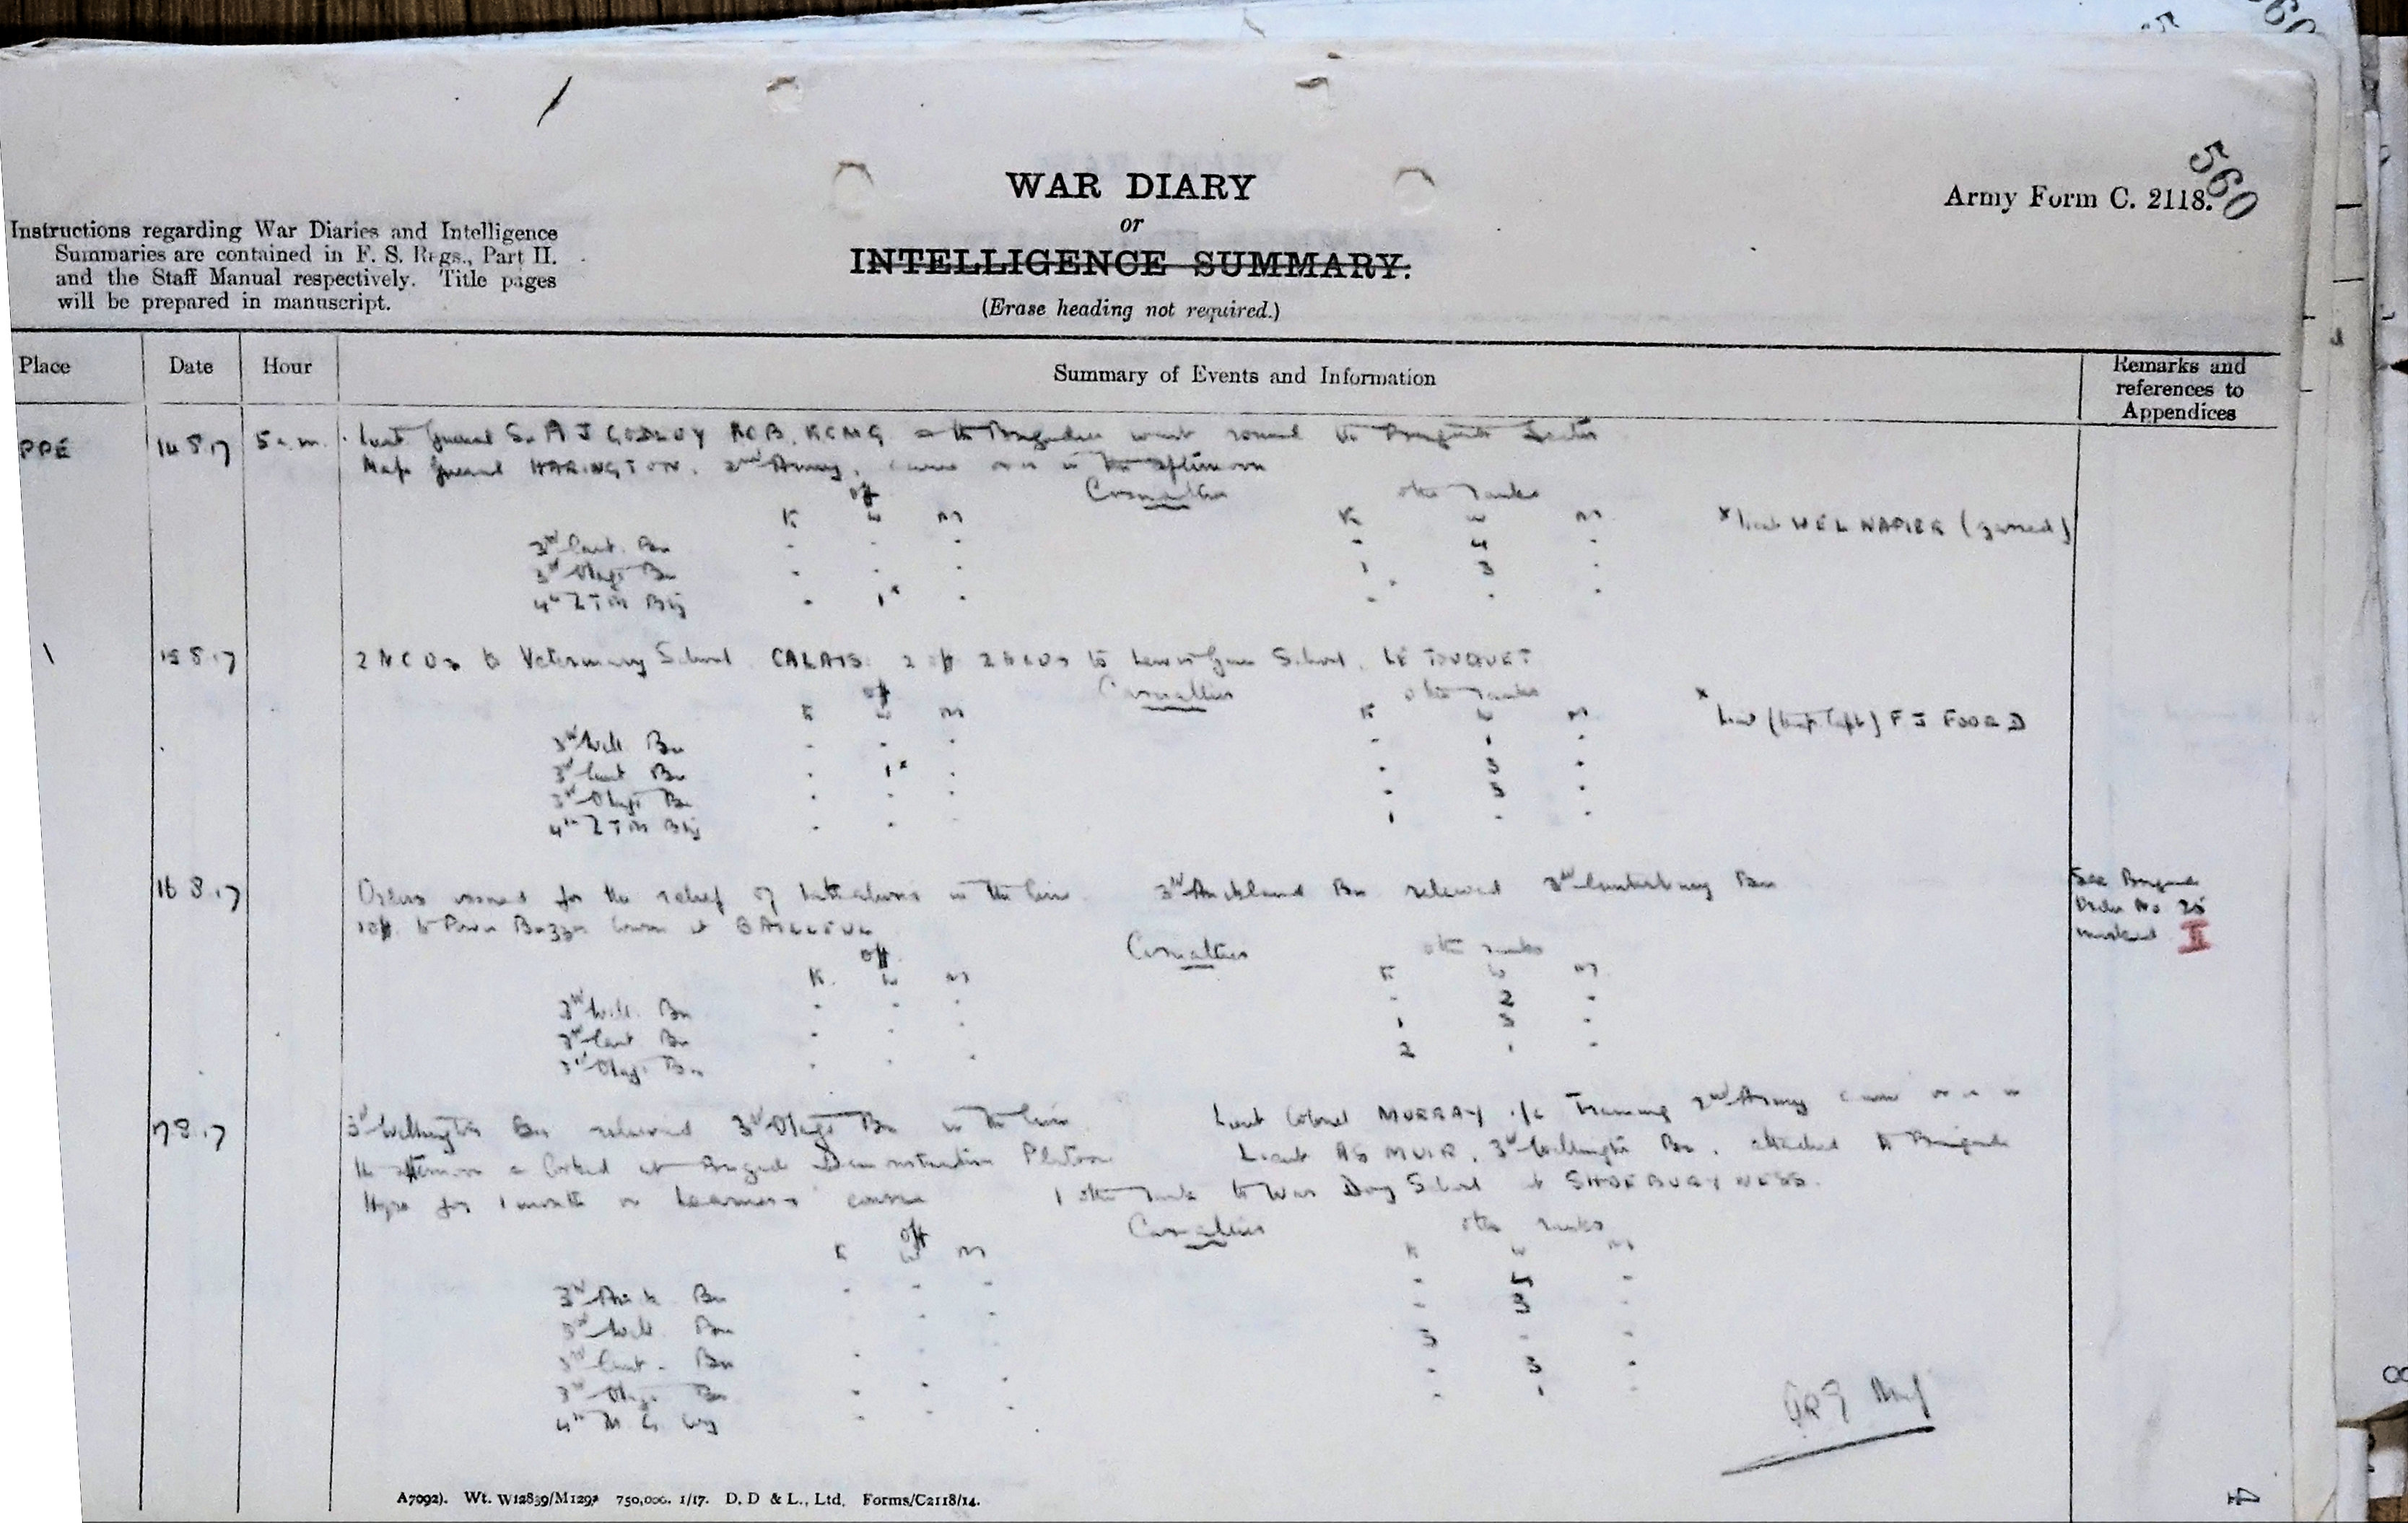 560
WAR DIARY
or
INTELLIGENCE SUMMARY.
(Erase heading not required.)
Army Form C. 2118.
560
Instructions regarding War Diaries and Intelligence
Summaries are contained in F. S. Regs., Part II.
and the Staff Manual respectively. Title pages
will be prepared in manuscript.
Place Date Hour Summary of Events and Information Remarks and references to Appendices
PPE 14 8.17 5 a.m. Lieut General Sir A J GODLEY KCB. KCMG & the Brigadier went round the Brigade Sector
Maj General HARINGTON. 2nd Army, came over in the afternoon
Off Casualties other ranks
K W M K W M × Lieut W E L NAPIER (gassed)
3rd Cant. Bn - - - - 4 -
3rd Otago Bn - - - 1 3 -
4th L T M Bty - 1× - - - -
15 8.17 2 NCOs to Veterinary School CALAIS. 2 off 2 NCOs to Lewis Gun School. LE TOUQUET
Off Casualties other ranks ×
K W M K W M Lieut (temp Capt) F J FOORD
3rd Well Bn - - - - 1 -
3rd Cant Bn - 1× - - 3 -
3rd Otago Bn - - - - 3 -
4th L T M Bty - - - 1 - -
16 8.17 Orders issued for the relief of battalions in the line. 3rd Auckland Bn relieved 3rd Canterbury Bn See Brigade
1 off. to Power Buzzer Course at BAILLEUL Order No 25
Off Casualties other ranks marked II
K. W M K W M
3rd Well. Bn - - - - 2 -
3rd Cant Bn - - - 1 3 -
3rd Otago Bn - - - 2 1 -
17 8.17 3rd Wellington Bn relieved 3rd Otago Bn in the line Lieut Colonel MURRAY i/c Training 2nd Army came over in
the afternoon & looked at Brigade Demonstration Platoon Lieut AG MUIR, 3rd Wellington Bn. attached to Brigade
Hqrs for 1 month on Learners course 1 other rank to War Dog School at SHOEBURYNESS.
Off Casualties other ranks
K W M K W M
3rd Auck Bn - - - - 4 -
3rd Well. Bn - - - 3 -
3rd Cant. Bn - 3 - -
3rd Otago Bn - - - - 3 -
4th M G Coy - - - - 1 -
A7092). Wt. W12839/M1293 750,000. 1/17. D. D & L., Ltd. Forms/C2118/14.